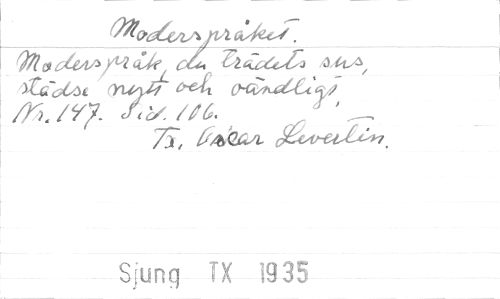 Moderspråket.
Moderspråk, du trädets sus,
städse nytt och oändligt,
Nr. 147. Sid. 106.
Tx. Oscar Levertin.
Sjung TX 1935